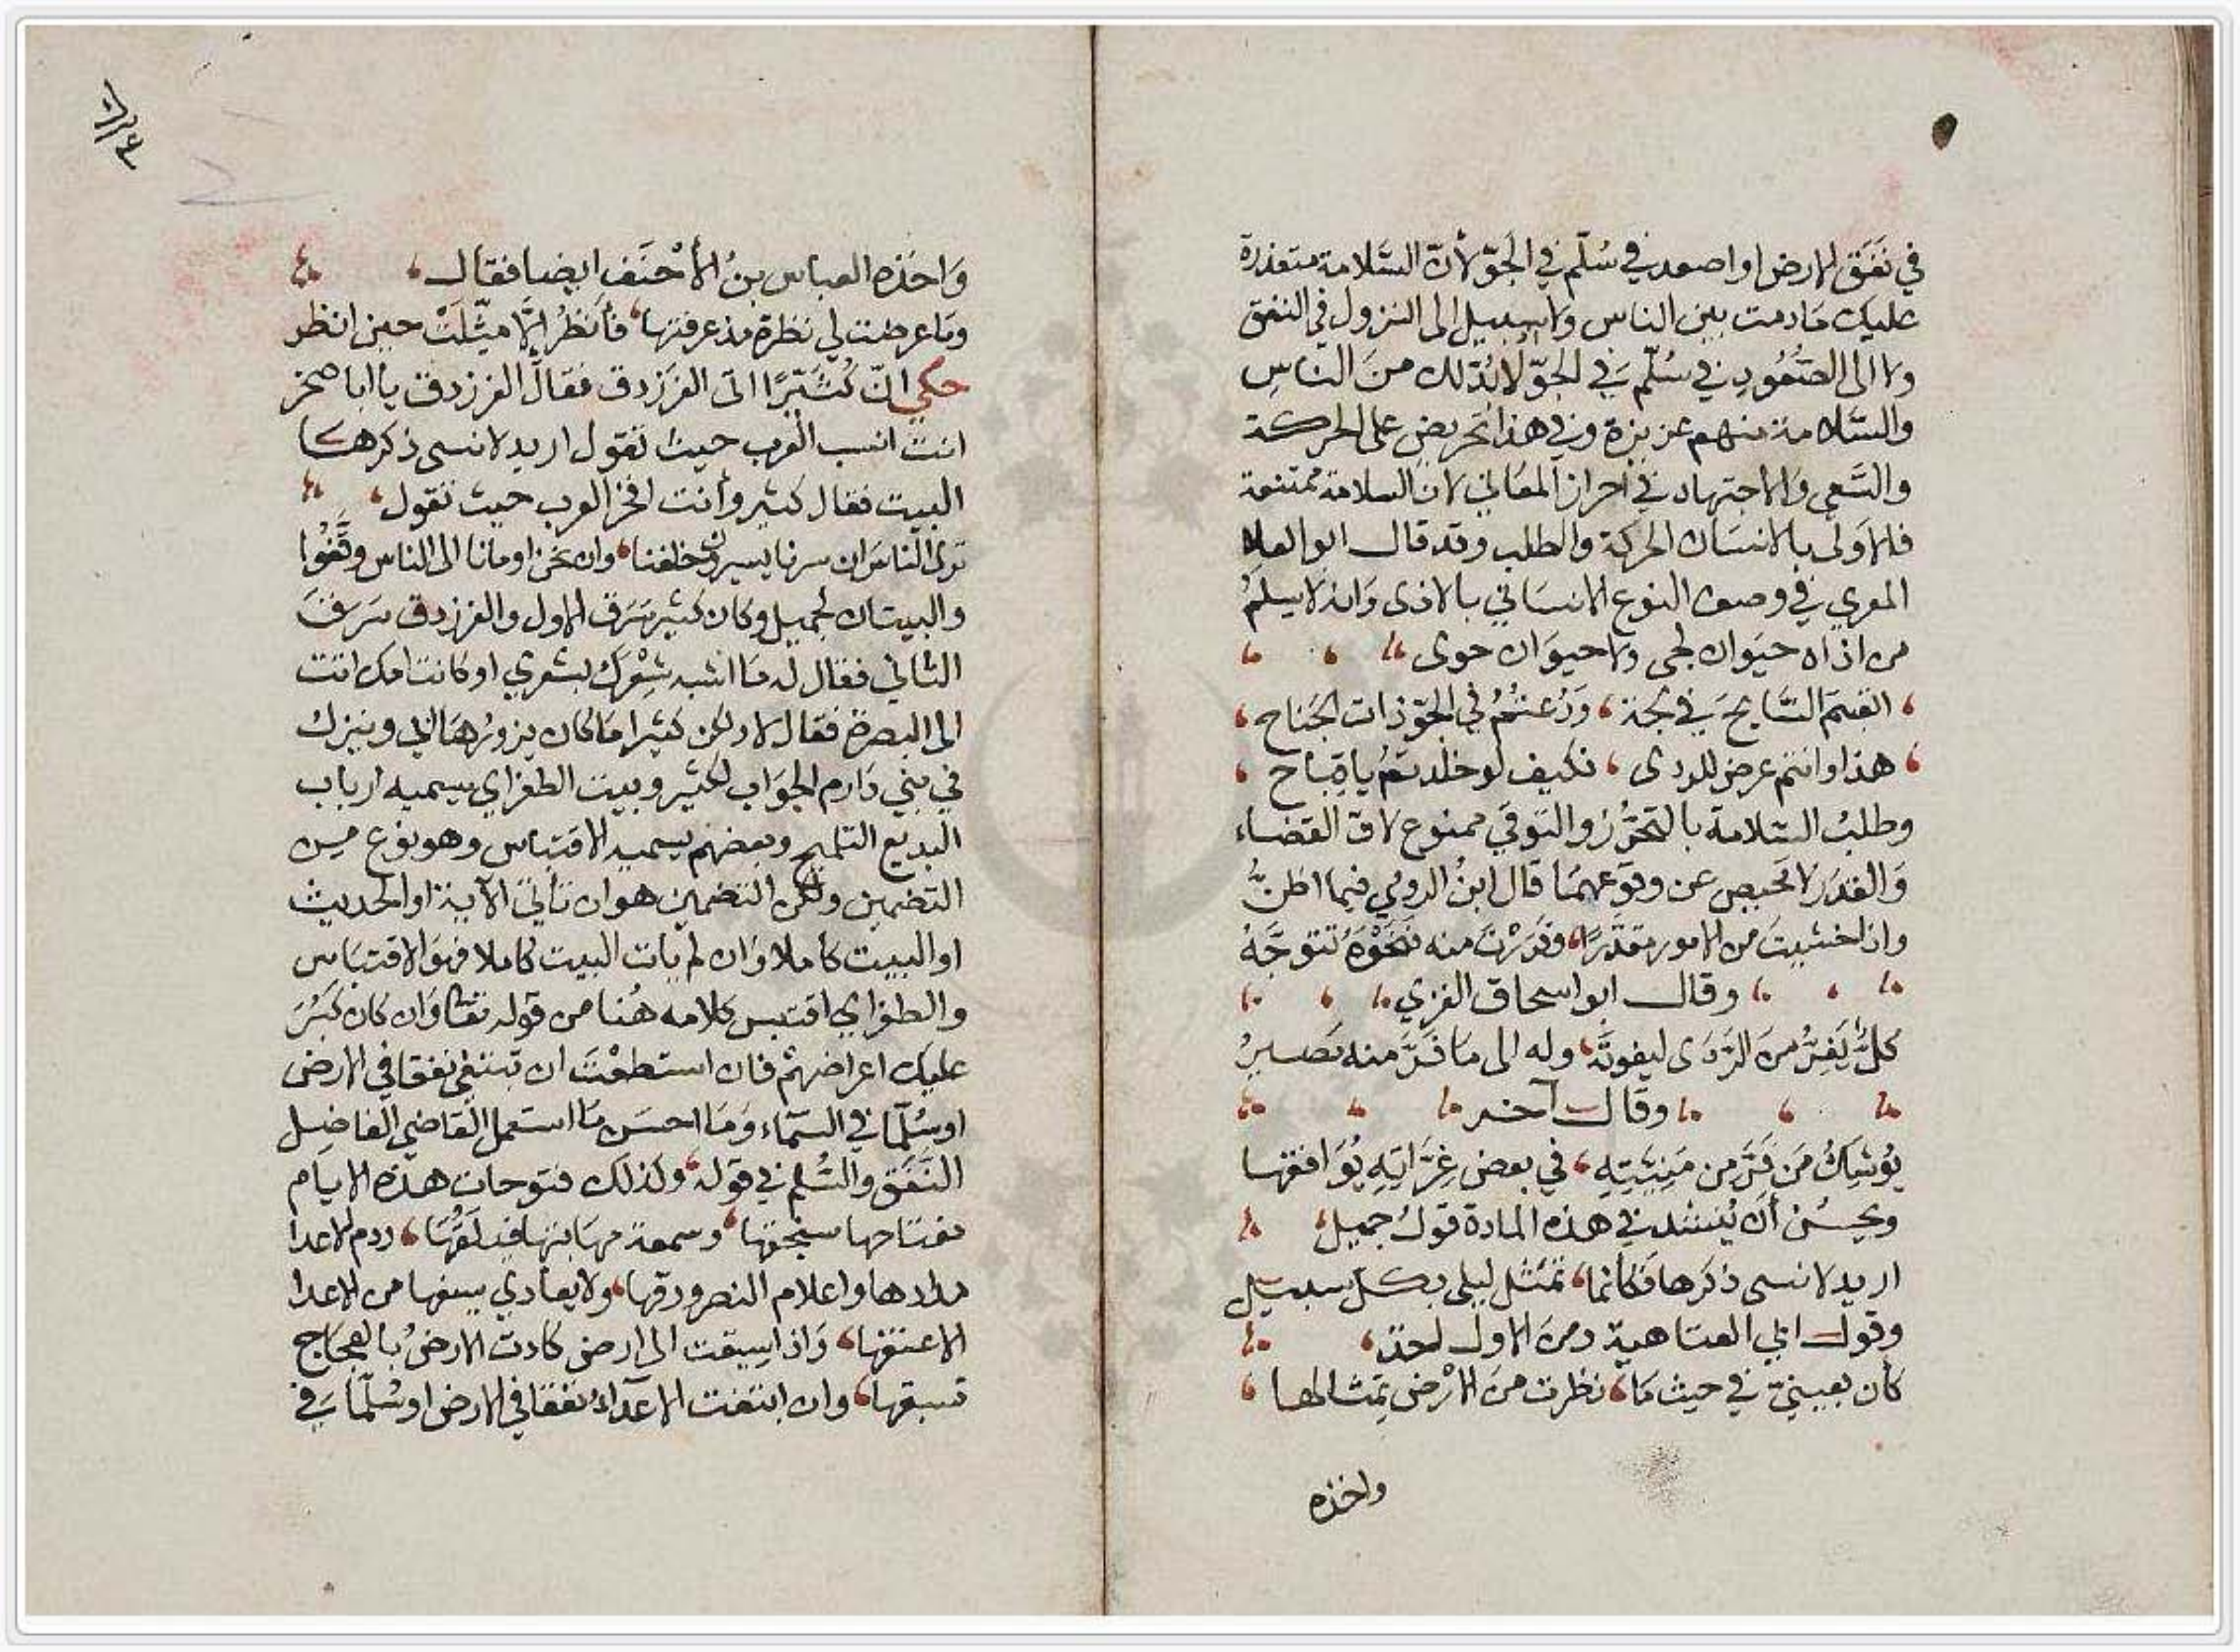 في نَفَق الارض او اصعد في سُلّم في الجَوّ لأنّ السَّلامة متعذرة
عليك مَا دمت بين الناس ولا سبيل الى النزول في النفق
ولا الى الصُّعُودِ في سُلّم في الجوّ لا بُدّ لك منَ الناسِ
والسَّلامة منهم عزيزة وفي هذا تحريض على الحركة
والسَّعي وَالاجتهاد في احراز المعَاني لانّ السلامة ممتنعة
فالاَولى بالانسَان الحركة والطلب وقد قال ابو العلا
المعري في وصف النوع الانسَاني بالاذى وَانه لا يسلمُ
من اذاه حيَوان لجى ولا حيوَان جوى
القيتم السَّابحَ في لجة ، وَرُعتُمُ في الجوّ ذات الجَناح ،
هذا وانتم عرض للردى ، فكيف لو خلدتمُ يا قِباح ،
وطلبُ السّلامة بالتحَرُّز والتوقي ممنوع لان القضاء
وَالقدَر لا محيص عن وقوعهمَا قال ابنُ الرومي فيما اظنُّ
واذا خشيتَ من الامور مقدَّرًا ، وفرَرْتَ منه فنَحْوَهُ تتوجَّهُ
وقال ابو اسحاق الغزي
كلٌّ يَفِرُّ منَ الرَّدَى ليفوتَهُ ، وله الى مَا فَرَّ منه تصيرُ
وقال آخر
يُوشِكُ مَن فَرَّ من مَنِيَّتِهِ ، في بعض غِرَّاتِهِ يُوَافقها
ويحسُن أن يُنشد في هذه المادة قولُ جميل ،
اريد لانسى ذكرَها فكأنما ، تمَثّل ليلى بكل سبيل
وقول ابي العتاهية ومن الاول اخذ ،
كأن بعينيّ في حيث مَا ، نظرت منَ الارْض تمثالها ،
واخذه
وَاخذه العباس بنُ الأحْنَف ايضا فقال ،
ومَا عرضت لي نظرة مذ عرفتها ، فأنظرُ الاَّ مثّلَتْ حين انظر
حكي انّ كُثَيّرًا اتى الفَرَزدق فقال الفرزدق يا ابا صخر
انت انسب العرب حيث تقول اريد لانسى ذكرها
البيت فقال كثير وأنت افخر العرب حيث تقول ،
ترى الناسَ ان سرنا يسيرون خلفنا ، وان نحن اومأنا الى الناس وقّفُوا
والبيتان لجميل وكان كثير سَرَق الاول والفرزدق سَرَقَ
الثاني فقال له مَا اشبه شِعْرَك بشعري او كانت امك اتت
الى البصرة فقال لا ولكن كثيرا مَا كان يزورُهَا ابي وينزل
في بني دَارم الجوَاب لكثير وبيت الطغراي يسميه ارباب
البديع التلميح وبعضهم يسميه الاقتباس وهو نوع من
التضمين ولكن التضمين هو ان تأتيَ الآية او الحديث
او البيت كاملا وَان لم يأت البيت كاملا فهوَ الاقتبَاس
والطغراي اقتبس كلامه هُنا من قوله تعَا وَان كان كَبُرَ
عليك اعراضهمْ فان استطعْتَ ان تبتغي نفقا في الارض
او سُلَّمًا في السَّماء وَمَا احسَن مَا استعمل القاضي الفاضل
النَّفَق والسُّلم في قوله ، وكذلك فتوحات هذه الايام
مفتاحها سيفها ، وسمعة مهَابتها ، ودم الاعدا
مدادها واعلام النصر ورقها ، ولا يعادي بسيفها من الاعدا
الا عنقها ، وَاذا سيقت الى ارض كادت الارضُ بالعجَاج
تسبقها ، وان ابتغت الاعَداءُ نفقا في الارض او سُلّمًا في